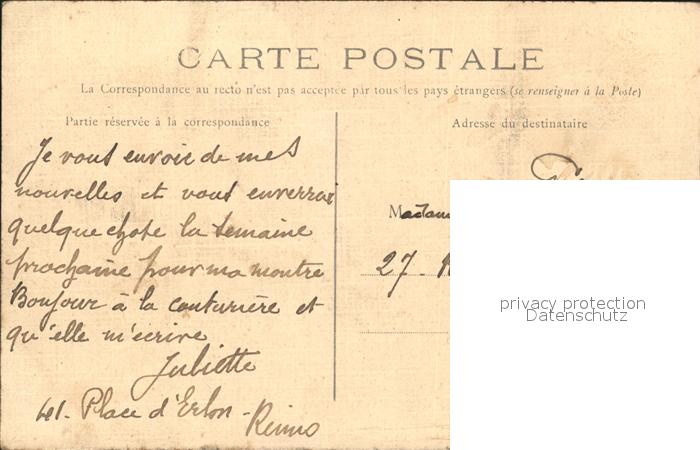 CARTE POSTALE
La Correspondance au recto n'est pas acceptée par tous les pays étrangers (se renseigner à la Poste)
Partie réservée à la correspondance
Adresse du destinataire
Je vous envoie de mes
nouvelles et vous enverrai
quelque chose la semaine
prochaine pour ma montre
Bonjour à la couturière et
qu'elle m'écrive
Juliette
41. Place d'Erlon -
Reims
Madam
27 -
privacy protection
Datenschutz